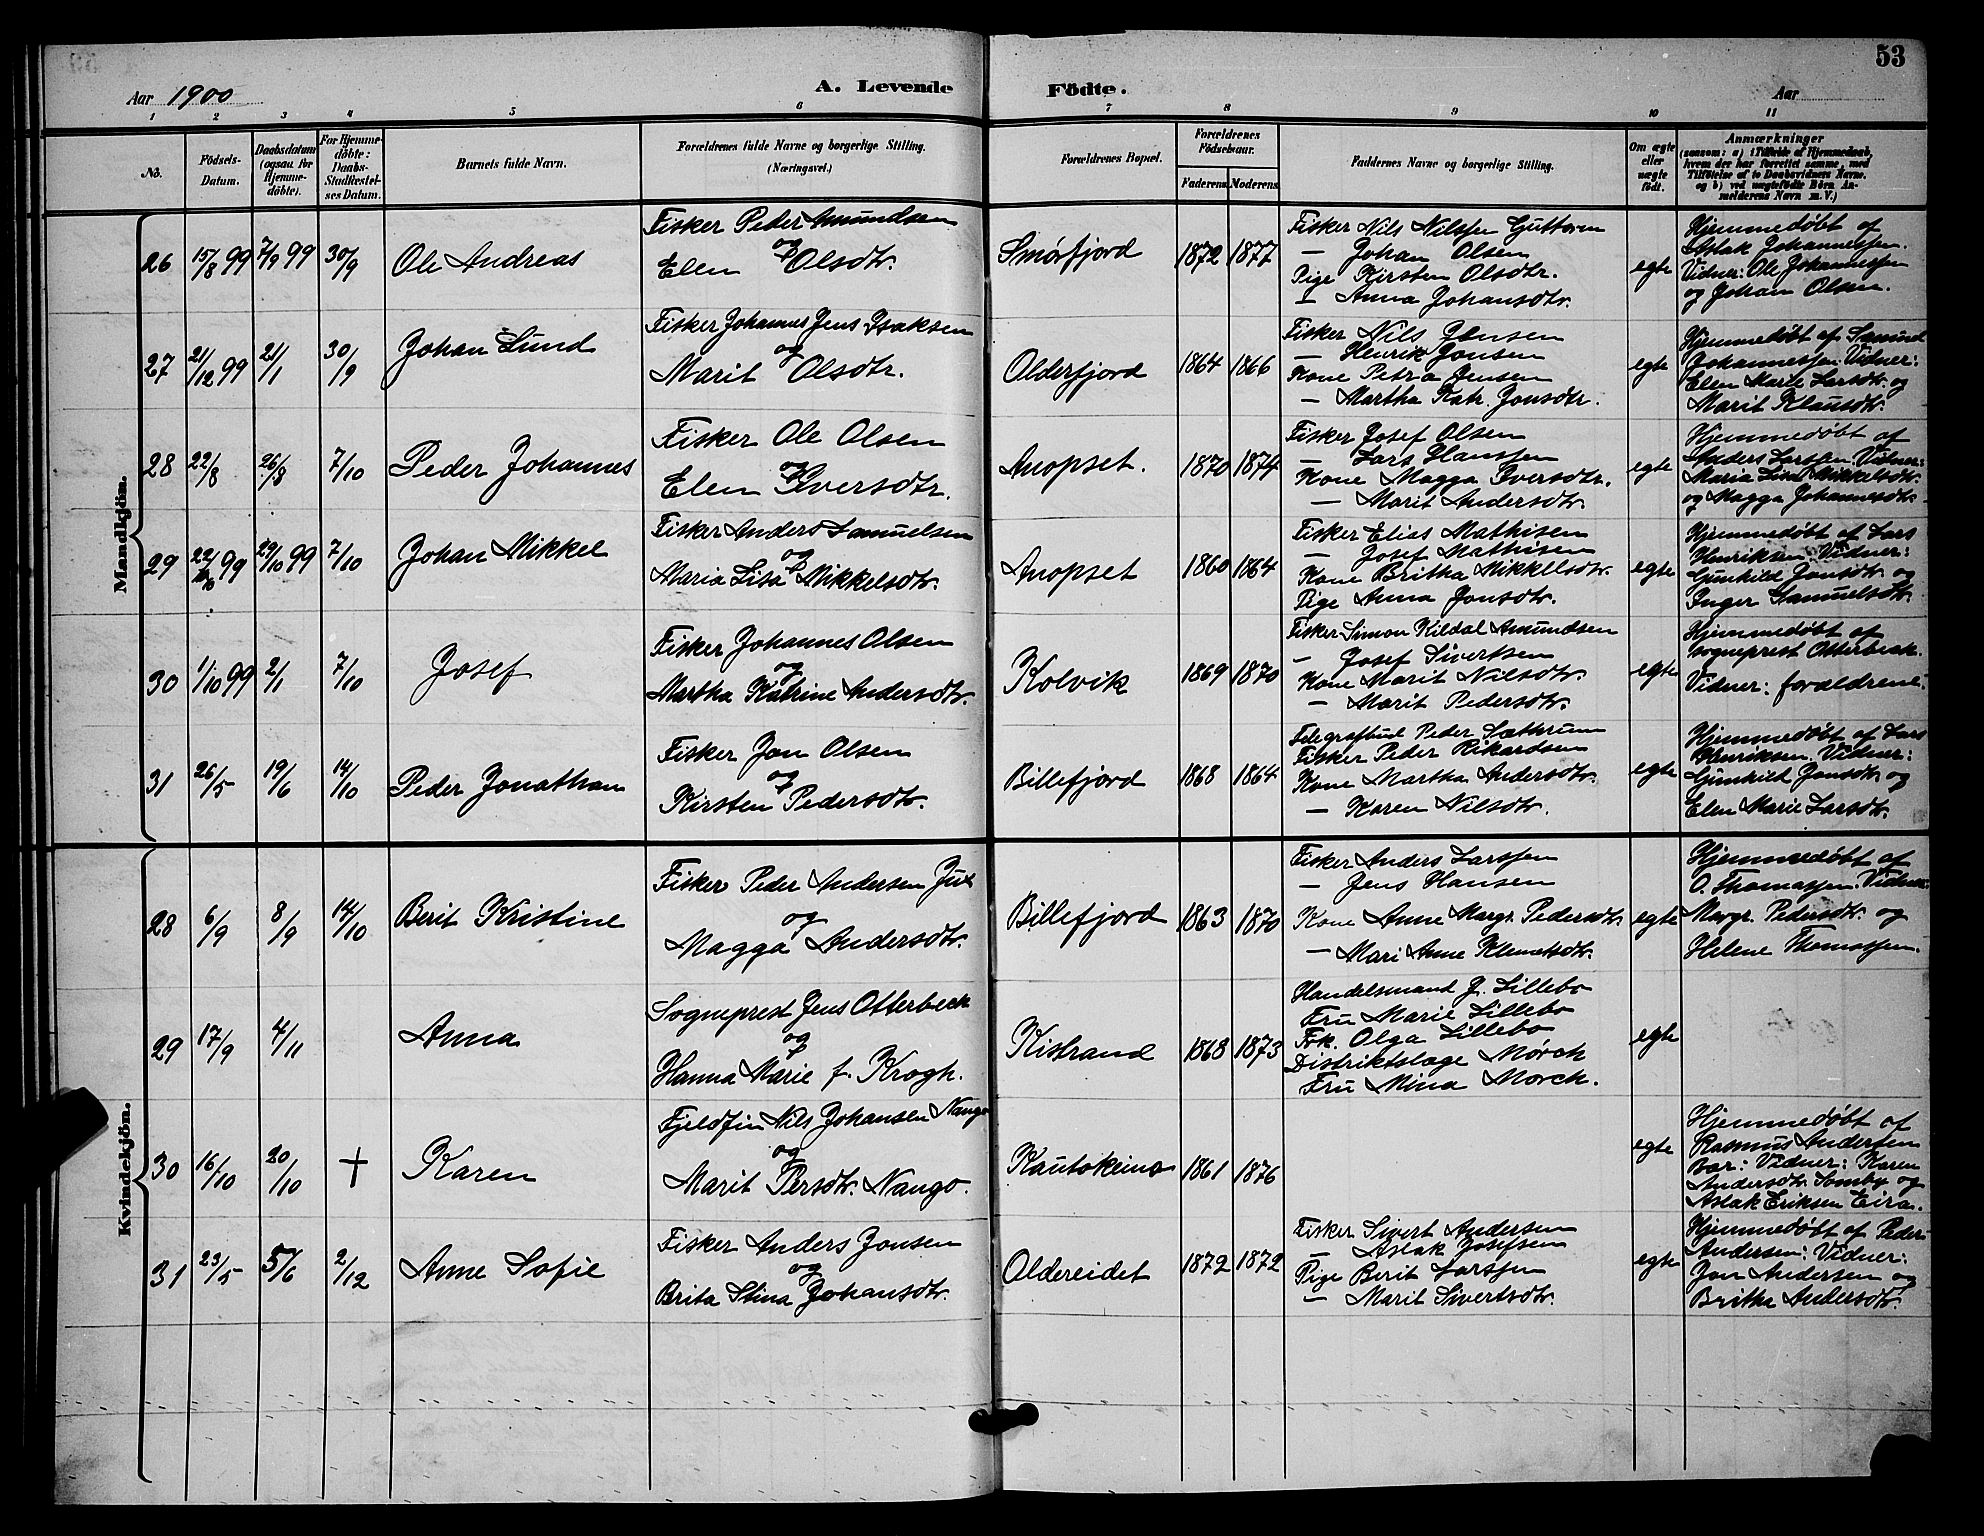 53
Aar 1900
A. Levende Födte.
Aar
1 2 3 4 5 6 7 8 9 10 11
No.
Födsels-Datum.
Daabsdatum (ogsaa for Hjemme-döbte).
For Hjemme-döbte: Daabs-Stadfæstel-ses Datum.
Barnets fulde Navn.
Forældrenes fulde Navne og borgerlige Stilling. (Næringsvei.)
Forældrenes Bopæl.
Forældrenes Födselsaar.
Faderens Moderens
Faddernes Navne og borgerlige Stilling.
Om ægte eller uægte födt.
Anmærkninger
(saasom: a) i Tilfælde af Hjemmedaab, hvem der har forrettet samme, med Tilföielse af to Daabsvidners Navne, og b) ved uægtefödte Börn An-melderens Navn m. V.)
Mandkjön.
26 15/8 99 7/9 99 30/9 Ole Andreas
Fisker Peder Amundsen
og
Elen Olsdtr.
Smørfjord 1872 1877
Fisker Nils Nilssen Guttorm
— Johan Olsen
Pige Kirsten Olsdtr.
— Anna Johansdtr.
egte
Hjemmedøbt af
Aslak Johannessen.
Vidner: Ole Johannessen
og Johan Olsen.
27 21/12 99 21/1 30/9 Johan Lund
Fisker Johannes Jens Isaksen
og
Marit Olsdtr.
Olderfjord 1864 1866
Fisker Nils Jensen
— Henrik Jonsen
Kone Petra Jensen
— Martha Katr. Jonsdtr.
egte
Hjemmedøbt af Samuel
Johannessen. Vidner:
Elen Marie Larsdtr. og
Marit Klausdtr.
28 22/8 26/8 7/10 Peder Johannes
Fisker Ole Olsen
og
Elen Iversdtr.
Anopset. 1870 1874
Fisker Josef Olsen
— Lars Hanssen
Kone Magga Iversdtr.
— Marit Andersdtr.
egte
Hjemmedøbt af
Anders Larssen. Vidner:
Maria Lisa Mikkelsdtr.
og Magga Johannesdtr.
29 22/ 99 29/10 99 7/10 Johan Mikkel
Fisker Anders Samuelsen
og
Maria Lisa Mikkelsdtr.
Anopset 1860 1864
Fisker Elias Mathisen
— Josef Mathisen
Kone Britha Mikkelsdtr.
Pige Anna Jonsdtr.
egte
Hjemmedøbt af Lars
Henriksen. Vidner:
Gunhild Jonsdtr. og
Inger Samuelsdtr.
30 1/10 99 2/1 7/10 Josef
Fisker Johannes Olsen
og
Martha Katrine Andersdtr.
Kolvik 1869 1870
Fisker Simon Kildal Amundsen
— Josef Sivertsen
Kone Marit Nilsdtr.
— Marit Pedersdtr.
egte
Hjemmedøbt af
Sogneprest Otterbeck.
Vidner: forældrene.
31 26/5 19/6 14/10 Peder Jonathan
Fisker Jon Olsen
og
Kirsten Pedersdtr.
Billefjord 1868 1864
Telegrafbud Peder Sæthrum
Fisker Peder Rikardsen
Kone Martha Andersdtr.
— Karen Nilsdtr.
egte
Hjemmedøbt af Lars
Henriksen. Vidner:
Gunhild Jonsdtr. og
Elen Marie Larsdtr.
Kvindekjön.
28 6/9 8/9 14/10 Berit Kristine
Fisker Peder Andersen Jux
og
Magga Andersdtr.
Billefjord 1863 1870
Fisker Anders Larssen
— Jens Hansen
Kone Anne Margr. Pedersdtr.
— Mari Anne Klemetsdtr.
egte
Hjemmedøbt af
O. Thomassen. Vidner:
Margr. Pedersdtr. og
Helene Thomassen.
29 17/9 4/11 Anna
Sogneprest Jens Otterbeck
og
Hanna Marie f. Krogh.
Kistrand 1868 1873
Handelsmand J. Lillebo
Fru Marie Lillebo
Frk. Olga Lillebo
Distriktslæge Mørch
Fru Mina Mørch.
egte
30 16/10 20/10 † Karen
Fjeldfin Nils Johansen Nango
og
Marit Persdtr. Nango.
Kautokeino 1861 1876
egte
Hjemmedøbt af
Rasmus Andersen
Bær: Vidner: Karen
Andersdtr. Somby og
Aslak Eriksen Eira.
31 23/5 5/6 2/12 Anne Sofie
Fisker Anders Jonsen
og
Brita Stina Johansdtr.
Oldereidet 1872 1872
Fisker Sivert Andersen
— Aslak Josefsen
Pige Berit Larssen
— Marit Sivertsdtr.
egte
Hjemmedøbt af Peder
Andersen: Vidner:
Jon Andersen og
Britha Andersdtr.